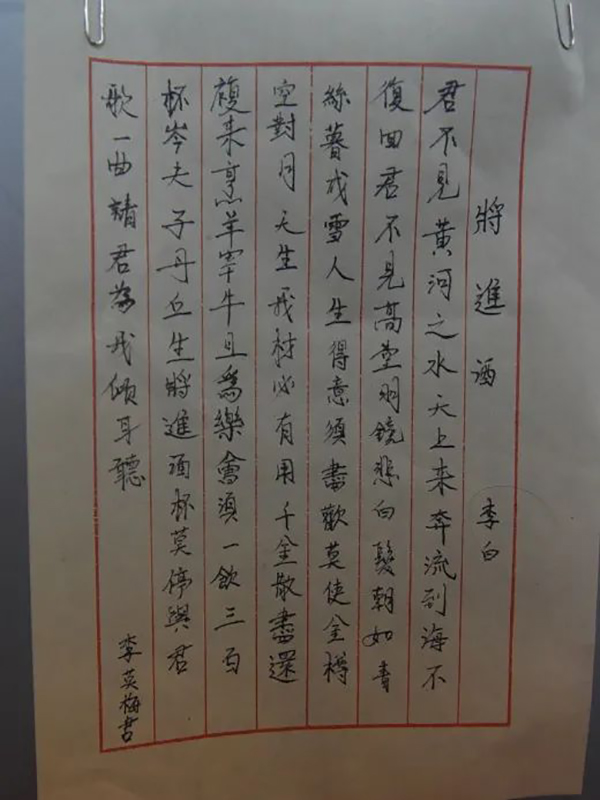 將進酒 李白
君不見黃河之水天上来奔流到海不
復回君不見高堂明鏡悲白髮朝如青
絲暮成雪人生得意須盡歡莫使金樽
空對月天生我材必有用千金散盡還
複来烹羊宰牛且為樂會須一飲三百
杯岑夫子丹丘生將進酒杯莫停與君
歌一曲請君為我傾耳聽
李英梅書